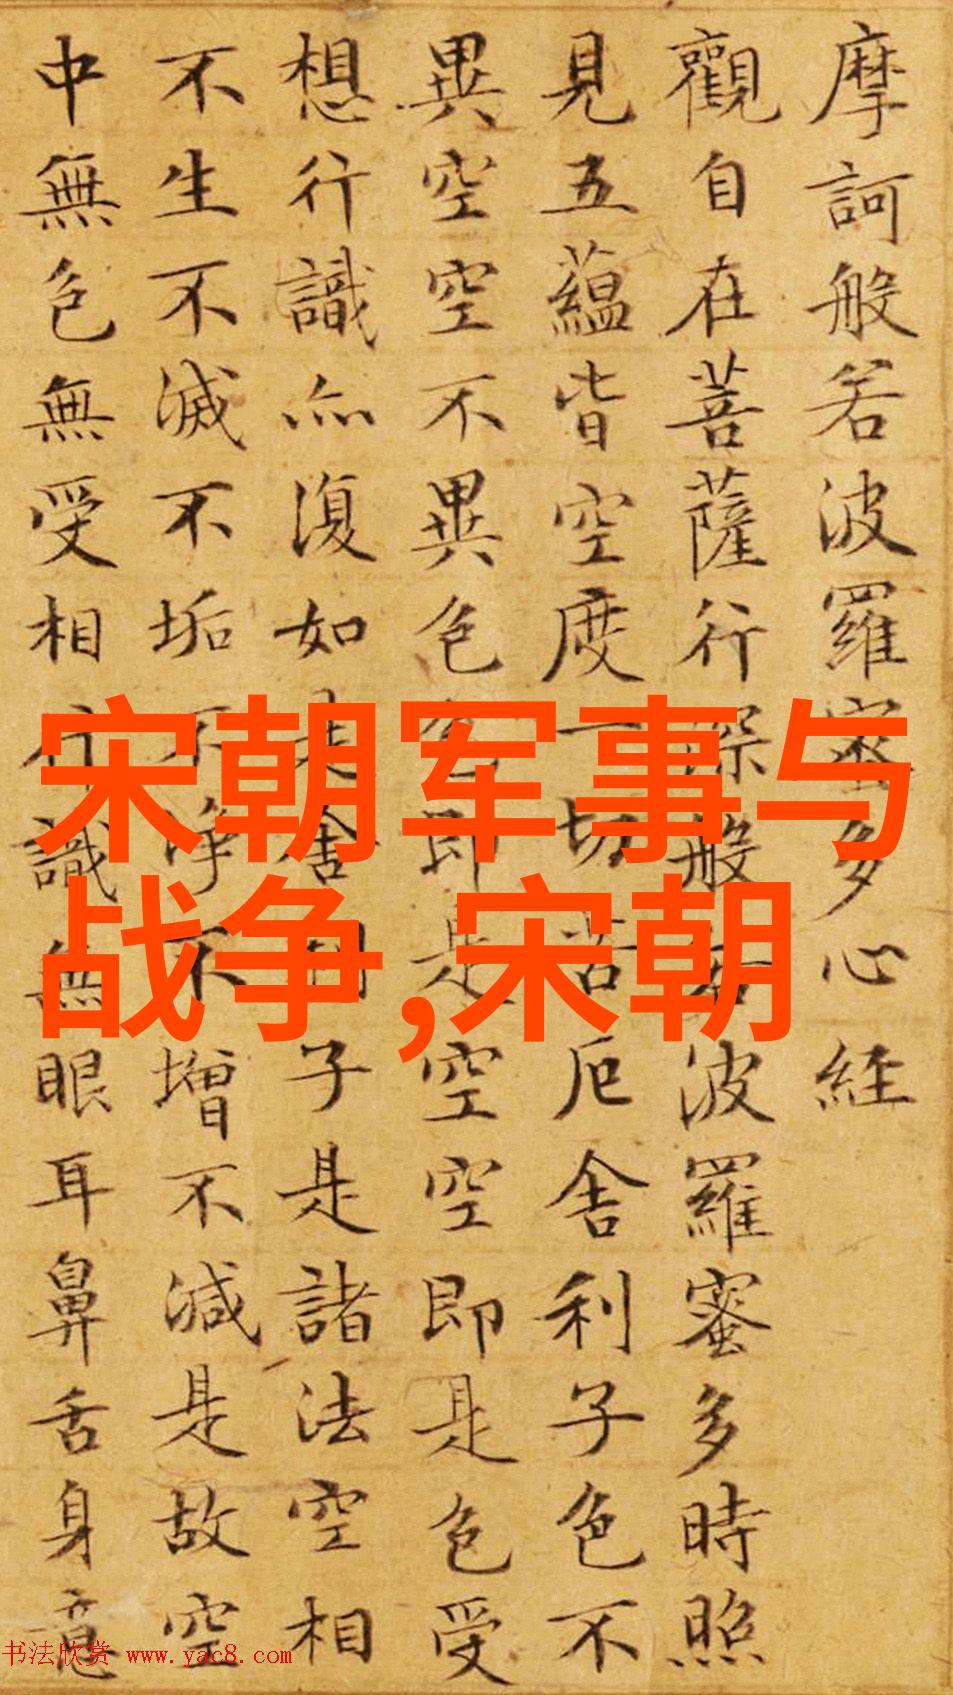 摩訶般若波羅蜜多心經
觀自在菩薩行深般若波羅蜜多時照
見五蘊皆空度一切苦厄舍利子色不
異空空不異色色即是空空即是色受
想行識亦復如是舍利子是諸法空相
不生不滅不垢不淨不增不減是故空
中無色無受相行識無眼耳鼻舌身意
宋朝军事与
战争,宋朝
书法欣赏 www.yac8.com